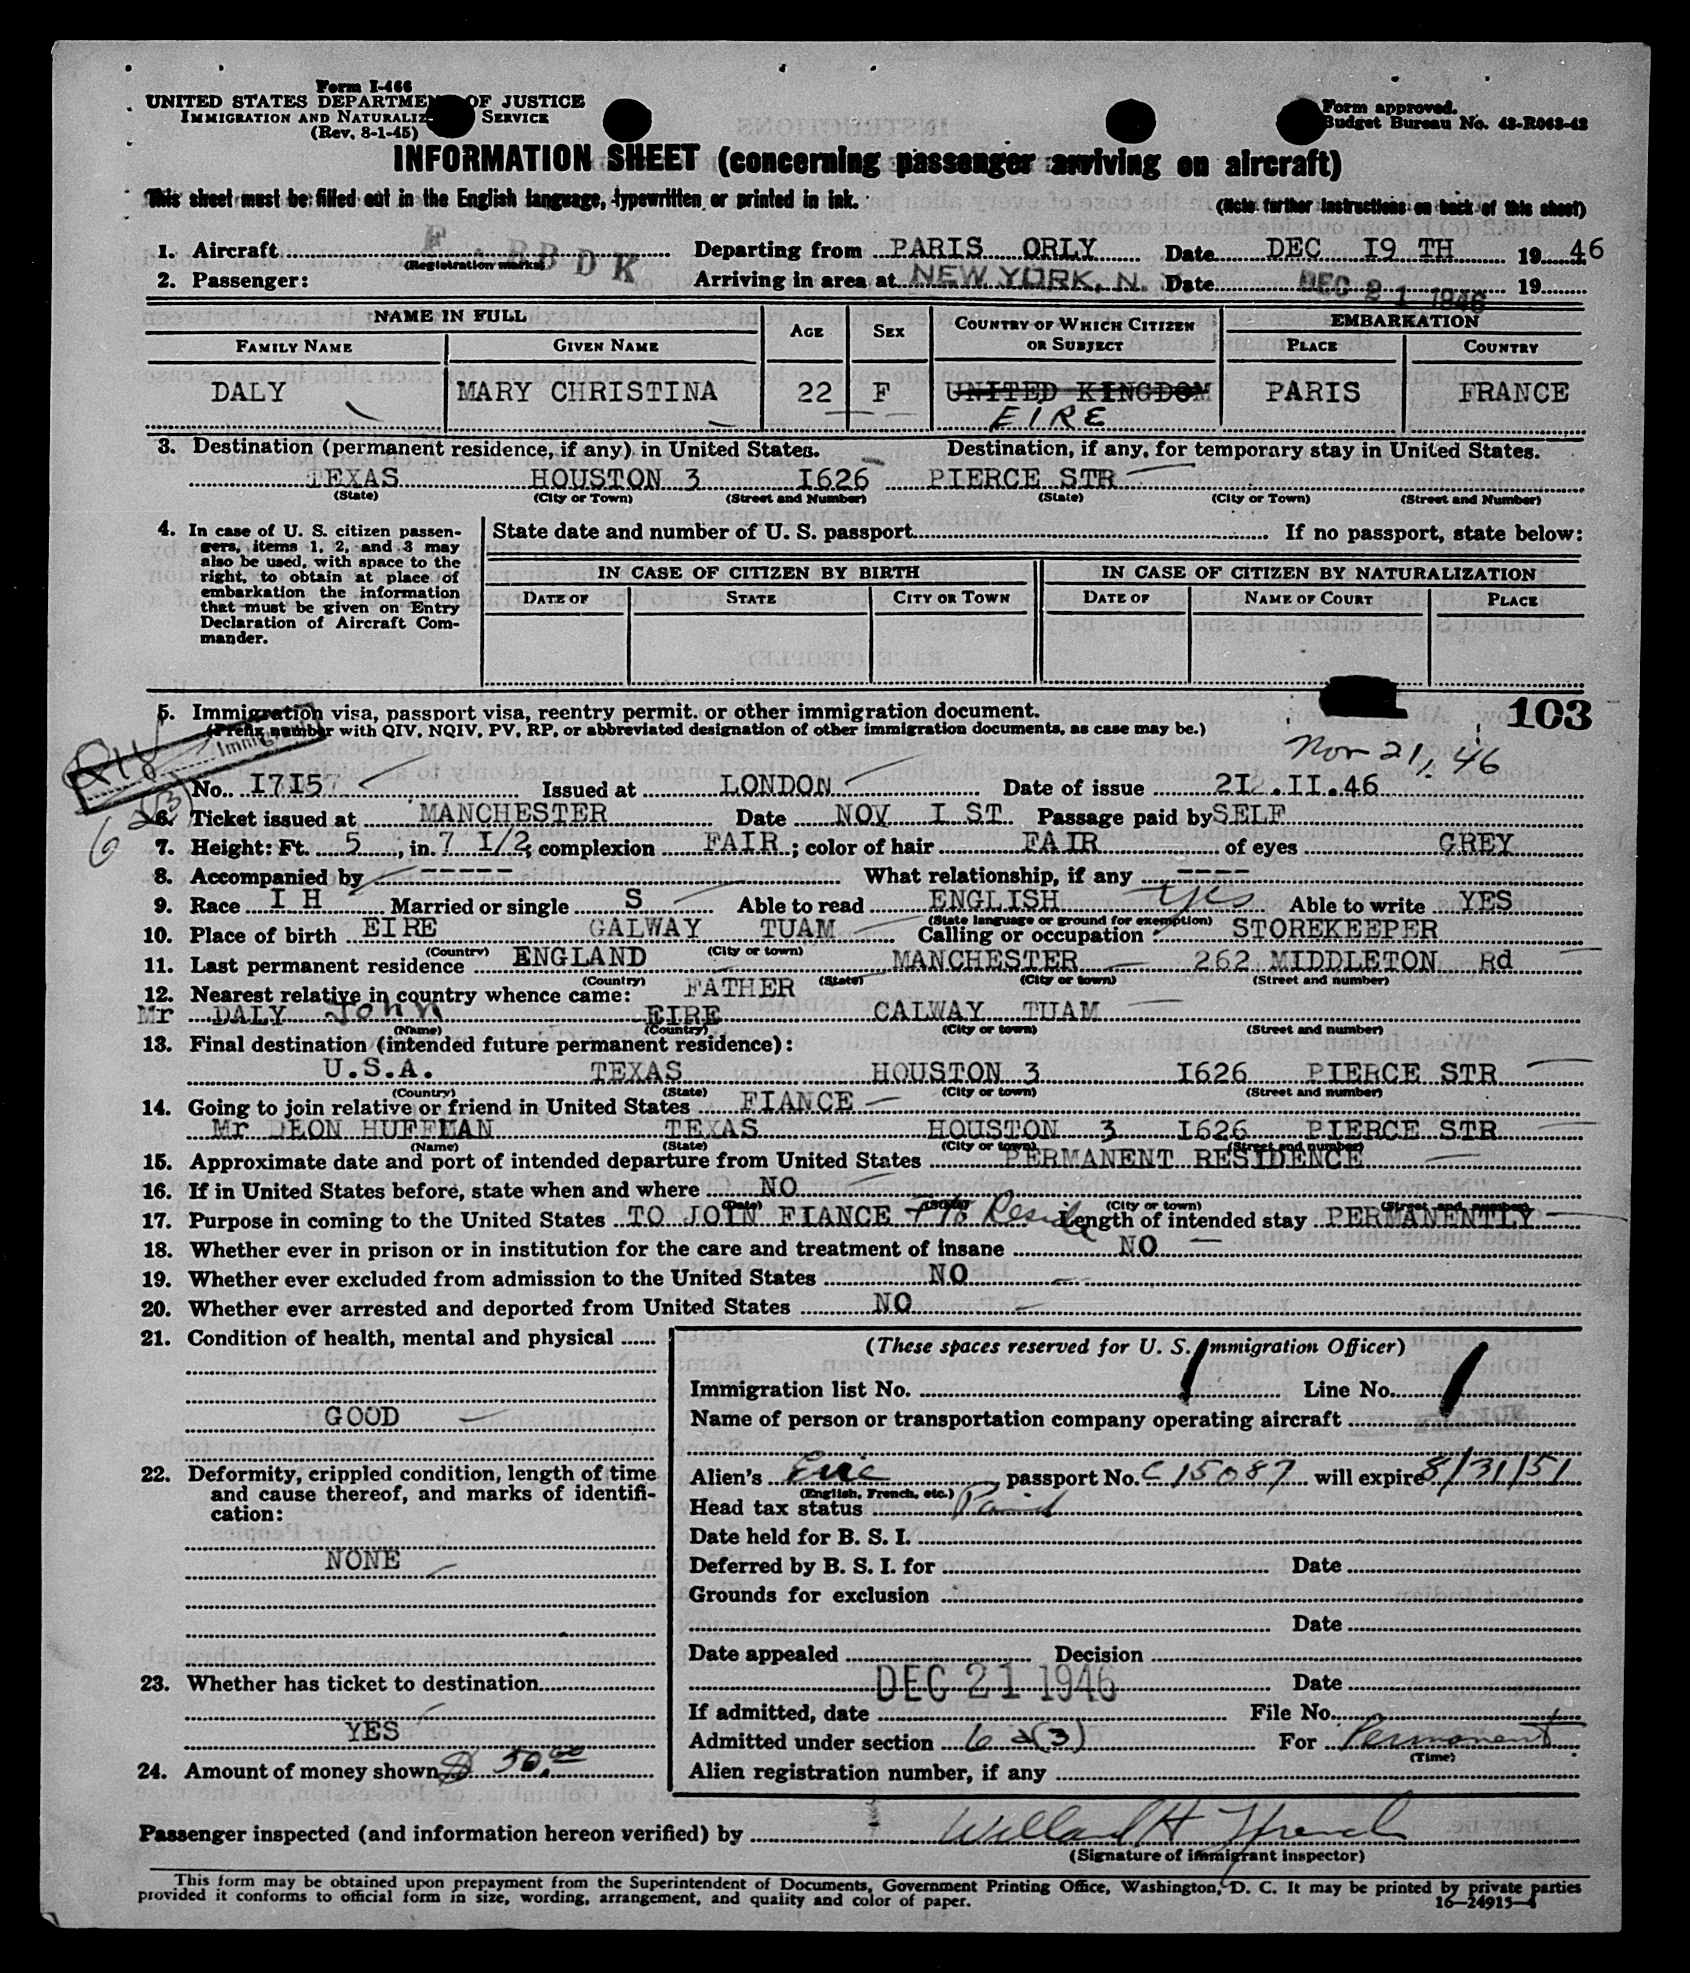 Form I-466
UNITED STATES DEPARTMENT OF JUSTICE
IMMIGRATION AND NATURALIZ SERVICE
(Rev. 8-1-45)
Form approved.
Budget Bureau No. 43-R063-42
INFORMATION SHEET (concerning passenger arriving on aircraft)
This sheet must be filled out in the English language, typewritten or printed in ink.
(Note further instructions on back of this sheet)
1. Aircraft F BBDK Departing from PARIS ORLY Date DEC I9 TH 1946
(Registration marks)
2. Passenger: Arriving in area at NEW YORK, N. Date DEC 21 1946 19
NAME IN FULL AGE SEX COUNTRY OF WHICH CITIZEN OR SUBJECT EMBARKATION
FAMILY NAME GIVEN NAME PLACE COUNTRY
DALY MARY CHRISTINA 22 F UNITED KINGDOM PARIS FRANCE
EIRE
3. Destination (permanent residence, if any) in United States. Destination, if any, for temporary stay in United States.
TEXAS HOUSTON 3 I626 PIERCE STR
(State) (City or Town) (Street and Number) (State) (City or Town) (Street and Number)
4. In case of U. S. citizen passen-
gers, items 1, 2, and 3 may
also be used, with space to the
right, to obtain at place of
embarkation the information
that must be given on Entry
Declaration of Aircraft Com-
mander.
State date and number of U. S. passport If no passport, state below:
IN CASE OF CITIZEN BY BIRTH IN CASE OF CITIZEN BY NATURALIZATION
DATE OF STATE CITY OR TOWN DATE OF NAME OF COURT PLACE
103
5. Immigration visa, passport visa, reentry permit, or other immigration document.
(Prefix number with QIV, NQIV, PV, RP, or abbreviated designation of other immigration documents, as case may be.)
QIV Immigration
Nov 21, 46
No. I7I57 Issued at LONDON Date of issue 2I.II.46
6 a(3)
6. Ticket issued at MANCHESTER Date NOV I ST Passage paid by SELF
7. Height: Ft. 5, in. 7 I/2, complexion FAIR; color of hair FAIR of eyes GREY
8. Accompanied by ----- What relationship, if any ----
9. Race I H Married or single S Able to read ENGLISH yes Able to write YES
(State language or ground for exemption)
10. Place of birth EIRE GALWAY TUAM Calling or occupation STOREKEEPER
(Country) (City or town)
11. Last permanent residence ENGLAND MANCHESTER 262 MIDDLETON Rd
(Country) (State) (City or town) (Street and number)
12. Nearest relative in country whence came: FATHER
Mr DALY John EIRE CALWAY TUAM
(Name) (Country) (City or town) (Street and number)
13. Final destination (intended future permanent residence):
U.S.A. TEXAS HOUSTON 3 I626 PIERCE STR
(Country) (State) (City or town) (Street and number)
14. Going to join relative or friend in United States FIANCE
Mr DEON HUFFMAN TEXAS HOUSTON 3 I626 PIERCE STR
(Name) (State) (City or town) (Street and number)
15. Approximate date and port of intended departure from United States PERMANENT RESIDENCE
16. If in United States before, state when and where NO
(Date) (State) (City or town) (Street and number)
17. Purpose in coming to the United States TO JOIN FIANCE + to Reside Length of intended stay PERMANENTLY
18. Whether ever in prison or in institution for the care and treatment of insane NO
19. Whether ever excluded from admission to the United States NO
20. Whether ever arrested and deported from United States NO
21. Condition of health, mental and physical
GOOD
22. Deformity, crippled condition, length of time
and cause thereof, and marks of identifi-
cation:
NONE
23. Whether has ticket to destination
YES
24. Amount of money shown $ 50.00
(These spaces reserved for U. S. Immigration Officer)
Immigration list No. 1 Line No. 1
Name of person or transportation company operating aircraft
Alien's Eire passport No. C 15087 will expire 8/31/51
(English, French, etc.)
Head tax status Paid
Date held for B. S. I.
Deferred by B. S. I. for Date
Grounds for exclusion
Date
Date appealed Decision
DEC 21 1946 Date
If admitted, date File No.
Admitted under section 6 a(3) For Permanent
(Time)
Alien registration number, if any
Passenger inspected (and information hereon verified) by Willard H French
(Signature of immigrant inspector)
This form may be obtained upon prepayment from the Superintendent of Documents, Government Printing Office, Washington, D. C. It may be printed by private parties
provided it conforms to official form in size, wording, arrangement, and quality and color of paper.
16—24915-1